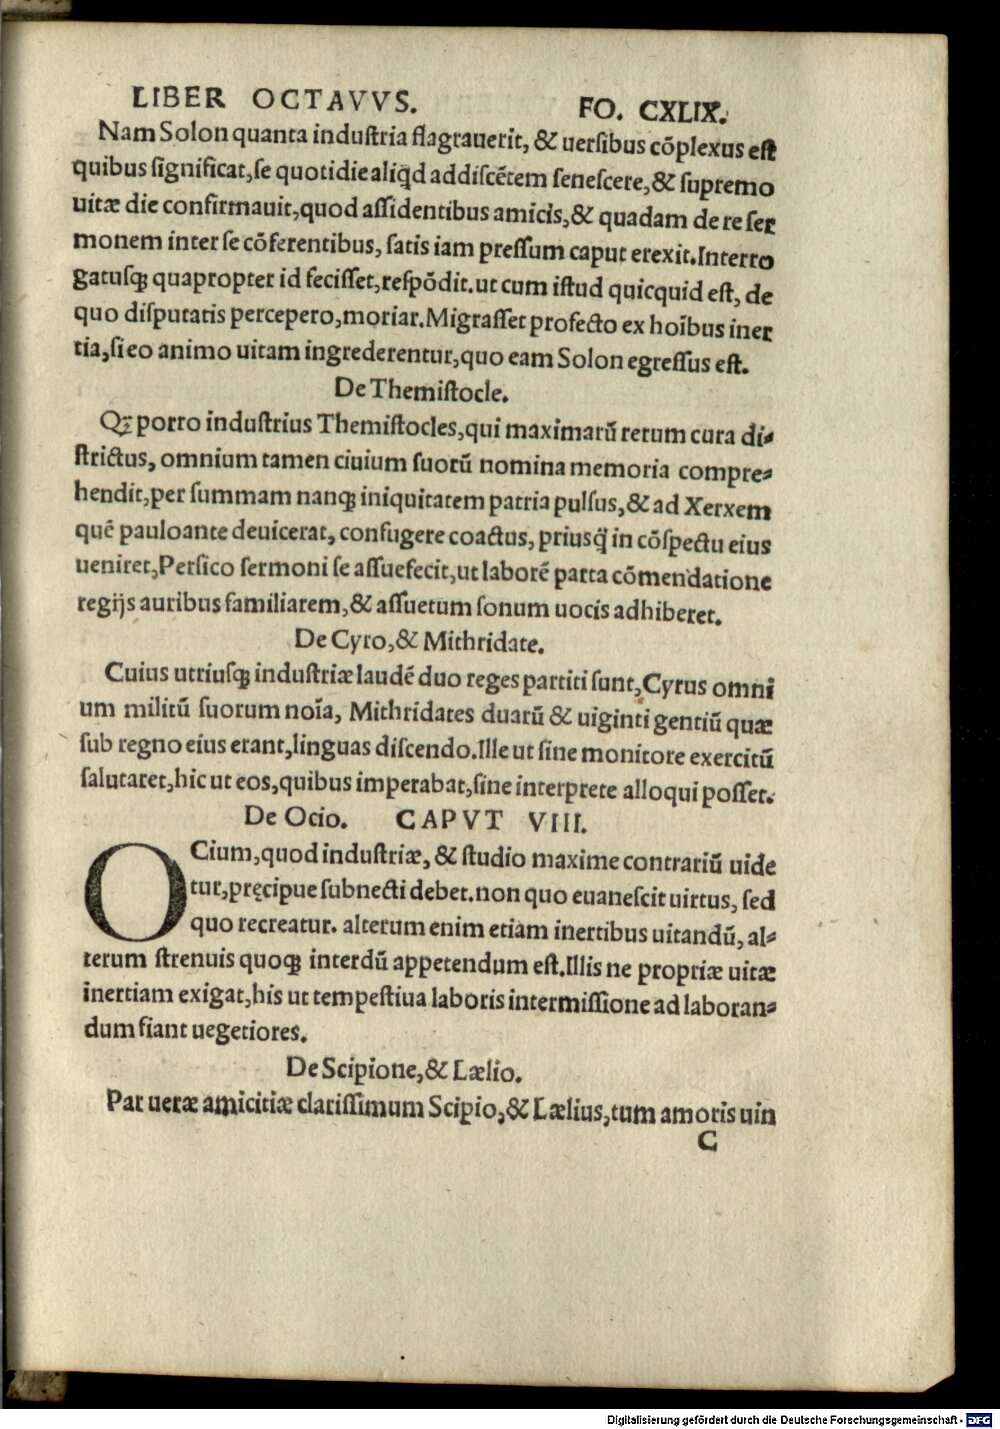 LIBER OCTAVVS. FO. CXLIX.
Nam Solon quanta industria flagrauerit, & uersibus cõplexus est
quibus significat, se quotidie aliqd addiscẽtem senescere, & supremo
uitæ die confirmauit, quod assidentibus amicis, & quadam de re ser
monem inter se cõferentibus, satis iam pressum caput erexit. Interro
gatusq; quapropter id fecisset, respõdit. ut cum istud quicquid est, de
quo disputatis percepero, moriar. Migrasset profecto ex hoĩbus iner
tia, si eo animo uitam ingrederentur, quo eam Solon egressus est.
De Themistocle.
Qz porro industrius Themistocles, qui maximarũ rerum cura di-
strictus, omnium tamen ciuium suorũ nomina memoria compre-
hendit, per summam nanq; iniquitatem patria pulsus, & ad Xerxem
quẽ pauloante deuicerat, confugere coactus, priusq̃ in cõspectu eius
ueniret, Persico sermoni se assuefecit, ut laborẽ parta cõmendatione
regijs auribus familiarem, & assuetum sonum uocis adhiberet.
De Cyro, & Mithridate.
Cuius utriusq; industriæ laudẽ duo reges partiti sunt, Cyrus omni
um militũ suorum noĩa, Mithridates duarũ & uiginti gentiũ quæ
sub regno eius erant, linguas discendo. Ille ut sine monitore exercitũ
salutaret, hic ut eos, quibus imperabat, sine interprete alloqui posset.
De Ocio. CAPVT VIII.
OCium, quod industriæ, & studio maxime contrariũ uide
tur, pręcipue subnecti debet. non quo euanescit uirtus, sed
quo recreatur. alterum enim etiam inertibus uitandũ, al-
terum strenuis quoq; interdũ appetendum est. Illis ne propriæ uitæ
inertiam exigat, his ut tempestiua laboris intermissione ad laboran-
dum fiant uegetiores.
De Scipione, & Lælio.
Par ueræ amicitiæ clarissimum Scipio, & Lælius, tum amoris uin
C
Digitalisierung gefördert durch die Deutsche Forschungsgemeinschaft - DFG